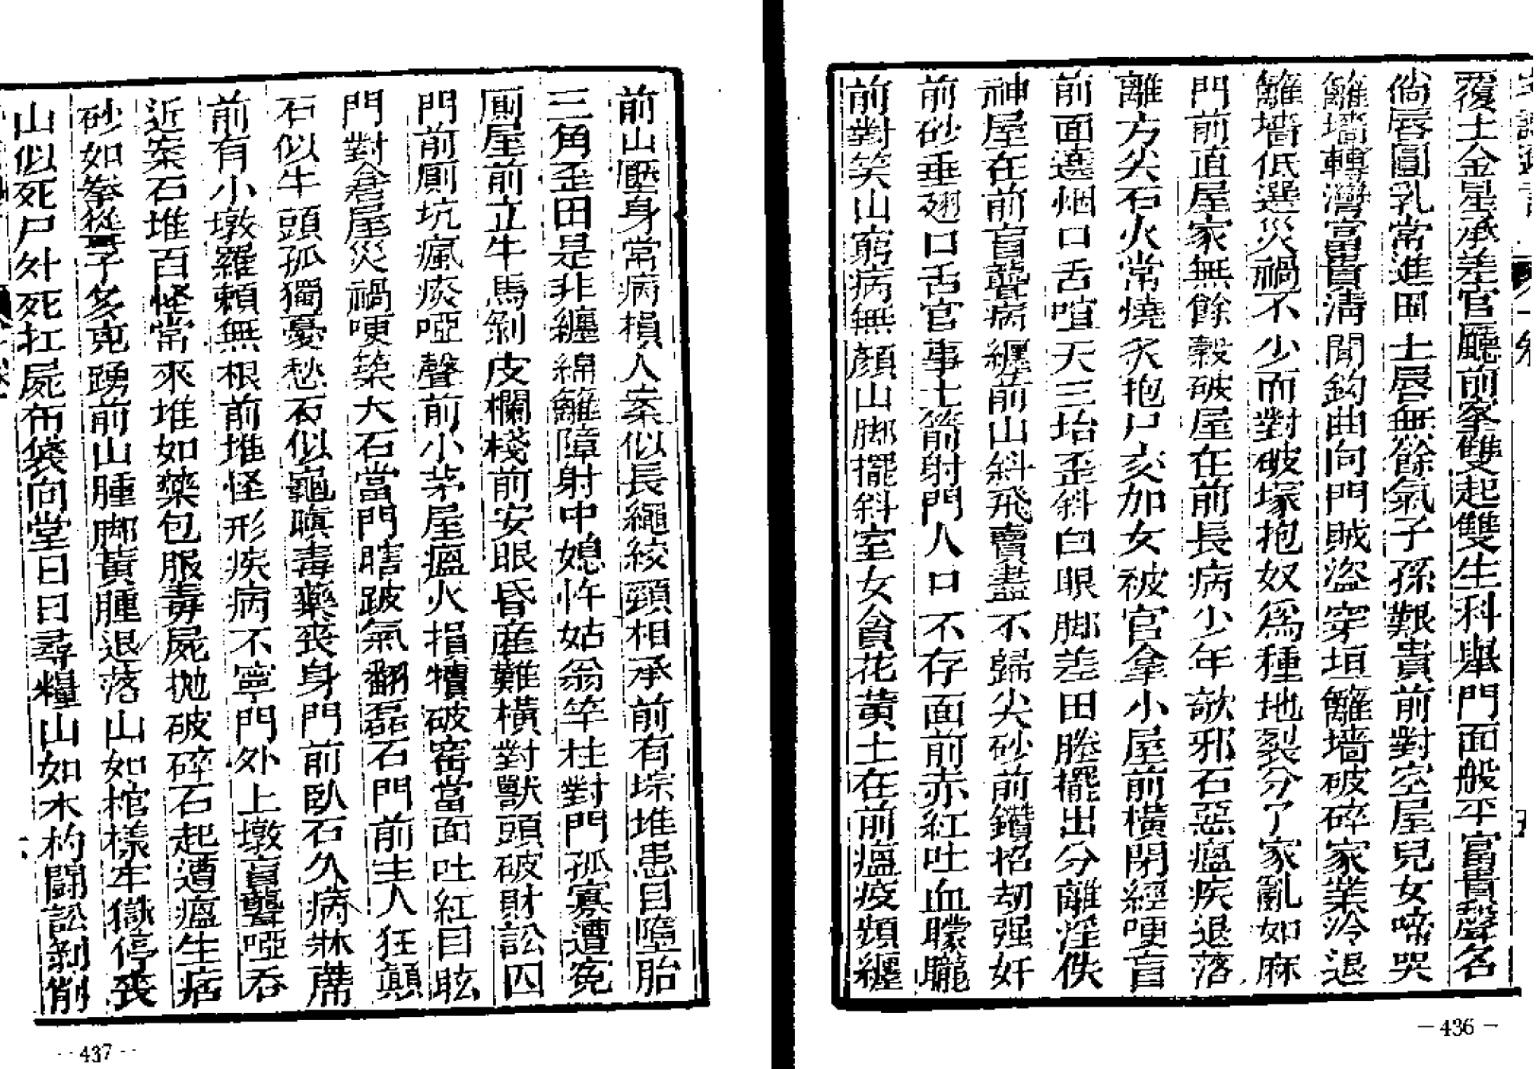 覆土金星承差官廳前峯雙起雙生科舉門面般平富貴聲名
尙唇圓乳常進田土唇無餘氣子孫艱貴前對空屋兒女啼哭
籬墻轉灣富貴淸閒鈎曲向門賊盜穿垣籬墻破碎家業冷退
籬墻低選災禍不少而對破塚抱奴爲種地裂分了家亂如麻
門前直屋家無餘穀破屋在前長病少年欹邪石惡瘟疾退落
離方尖石火常燒炙抱尸交加女被官拿小屋前橫閉經哽盲
前面遶烟口舌喧天三抬歪斜白眼脚差田塍擺出分離淫佚
神屋在前盲聾病纏前山斜飛賣盡不歸尖砂前鑽招劫强奸
前砂垂翅口舌官事七箭射門人口不存面前赤紅吐血朦朧
前對笑山窮病無顏山脚擺斜室女貪花黃土在前瘟疫頻纏
— 436 —
前山壓身常病損人案似長繩絞頸相承前有琮堆患目墮胎
三角歪田是非纏綿籬障射中媳忤姑翁竿柱對門孤寡遭冤
厠屋前立牛馬剝皮欄棧前安眼昏産難橫對獸頭破財訟囚
門前厠坑瘋痰啞聲前小茅屋瘟火損犢破窑當面吐紅目眩
門對倉屋災禍哽藥大石當門瞎跛氣翻磊石門前主人狂顛
石似牛頭孤獨憂愁石似龜嗔毒藥喪身門前臥石久病牀蓆
前有小墩羅賴無根前堆怪形疾病不寧門外上墩盲聾啞吞
近案石堆百怪常來堆如藥包服毒屍拋破碎石起遭瘟生㾏
砂如拳從子多克踴前山腫脚黃腫退落山如棺樣牢獄停喪
山似死尸外死扛屍布袋向堂日日尋糧山如木杓鬪訟剝削
六
-- 437 --